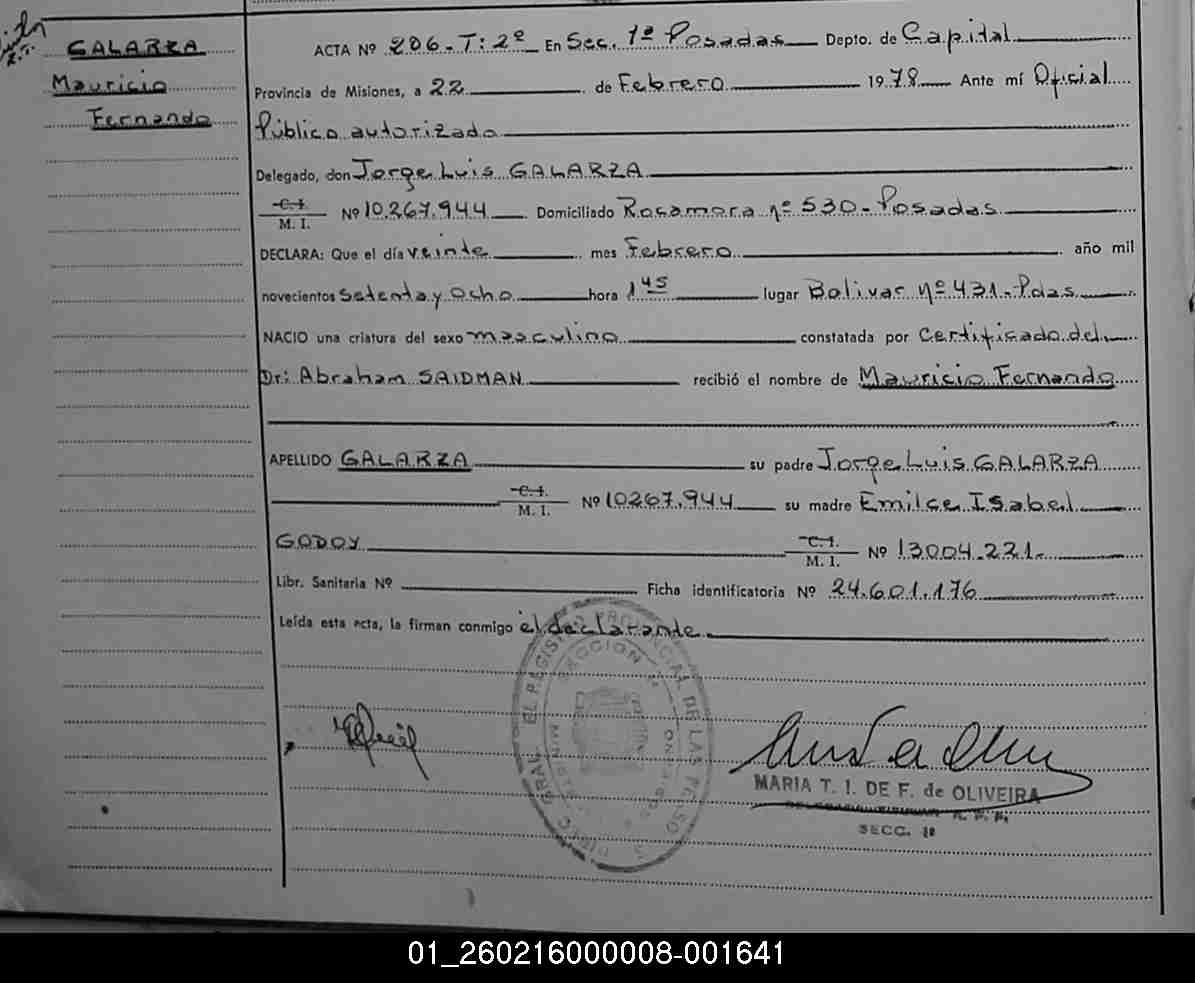 GALARZA
Mauricio
Fernando
ACTA Nº 206-T:2º En Sec. 1ª Posadas Depto. de Capital
Provincia de Misiones, a 22 de Febrero 1978 Ante mí Oficial
Público autorizado
Delegado, don Jorge Luis GALARZA
C.I.
M. I. Nº 10.267.944 Domiciliado Rocamora nº 530-Posadas
DECLARA: Que el día veinte mes Febrero año mil
novecientos Setenta y Ocho hora 1 45 lugar Bolivar nº 431-Pdas
NACIO una criatura del sexo masculino constatada por Certificado del
Dr: Abraham SAIDMAN recibió el nombre de Mauricio Fernando
APELLIDO GALARZA su padre Jorge Luis GALARZA
C.I.
M. I. Nº 10267.944 su madre Emilce Isabel
GODOY C.I.
M. I. Nº 13004.221-
Libr. Sanitaria Nº Ficha identificatoria Nº 24.601.176
Leída esta acta, la firman conmigo el declarante
MARIA T. I. DE F. de OLIVEIRA
SECC. 1ª
01_260216000008-001641